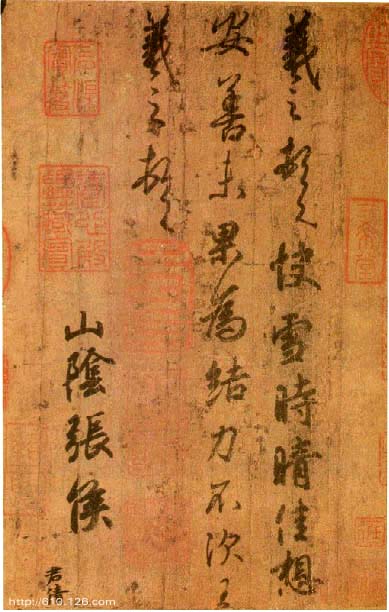 羲之頓首快雪時晴佳想
安善未果為結力不次王
羲之頓首
山陰張侯
君倩
http://610.126.com